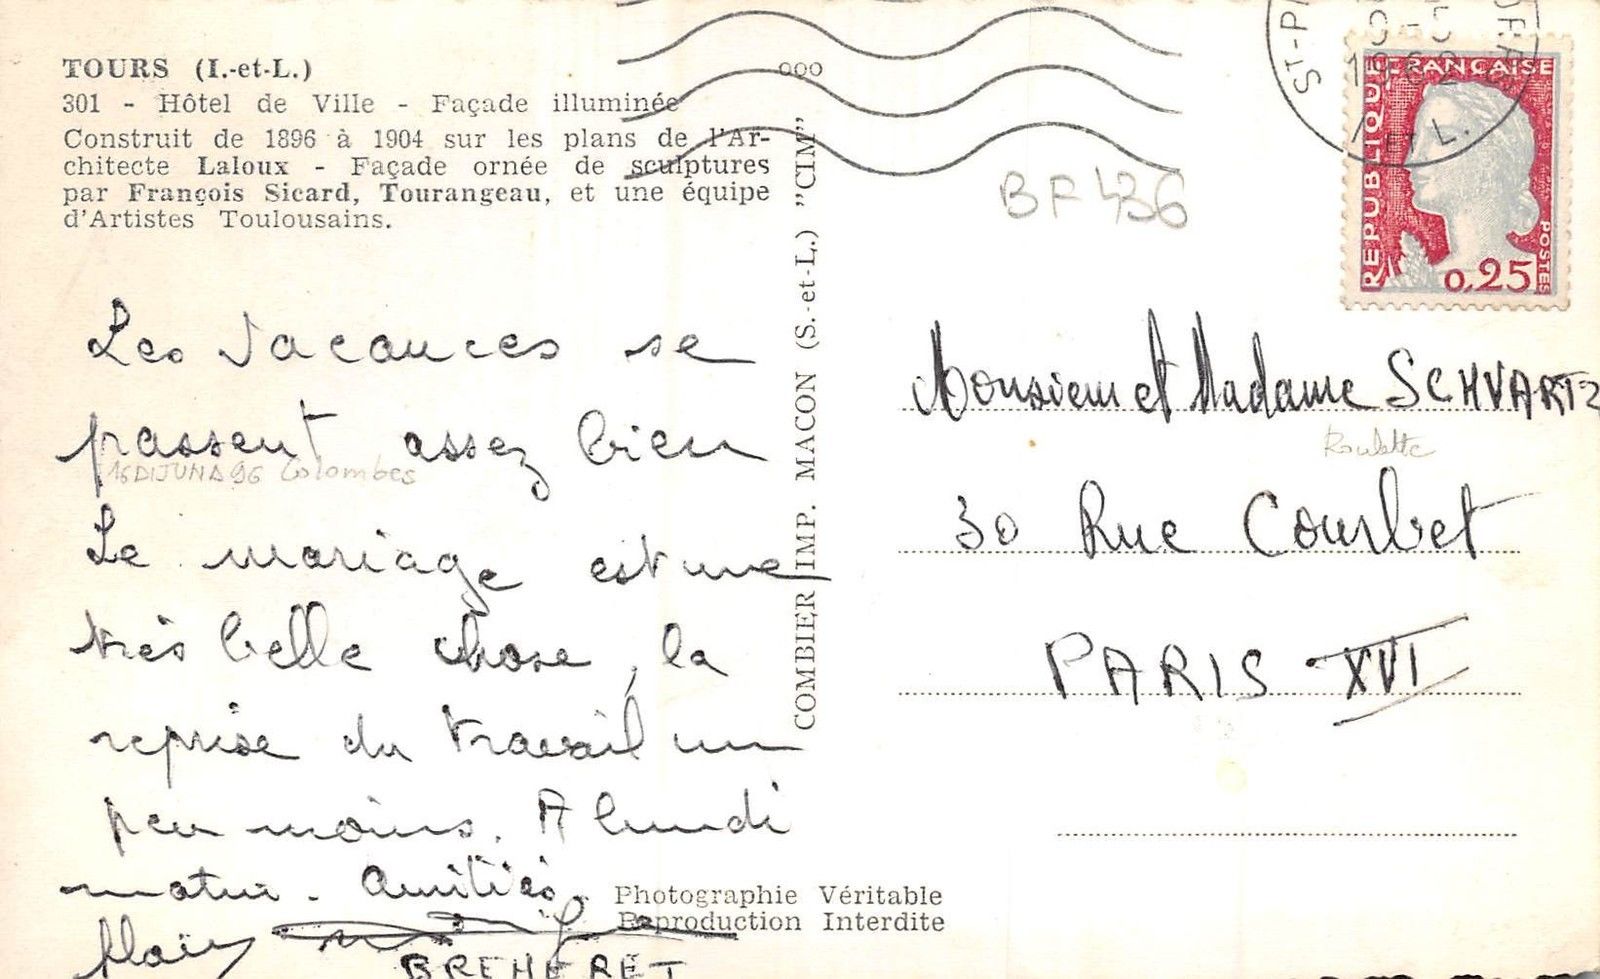 TOURS (I.-et-L.)
301 - Hôtel de Ville - Façade illuminée
Construit de 1896 à 1904 sur les plans de l'Ar-
chitecte Laloux - Façade ornée de sculptures
par François Sicard, Tourangeau, et une équipe
d'Artistes Toulousains.
Les vacances se
passent assez bien
16 DIJUNA 96 Colombes
Le mariage est une
très belle chose, la
reprise du travail un
peu moins. A lundi
matin. Amitiés.
Alain
BREHERET
Photographie Véritable
Reproduction Interdite
COMBIER IMP. MACON (S.-et-L.) "CIM"
ooo
ST-P
19
ET L.
REPUBLIQUE FRANÇAISE
POSTES
0,25
BF 436
Monsieur et Madame SCHVARTZ
Roulette
30 Rue Courbet
PARIS - XVI